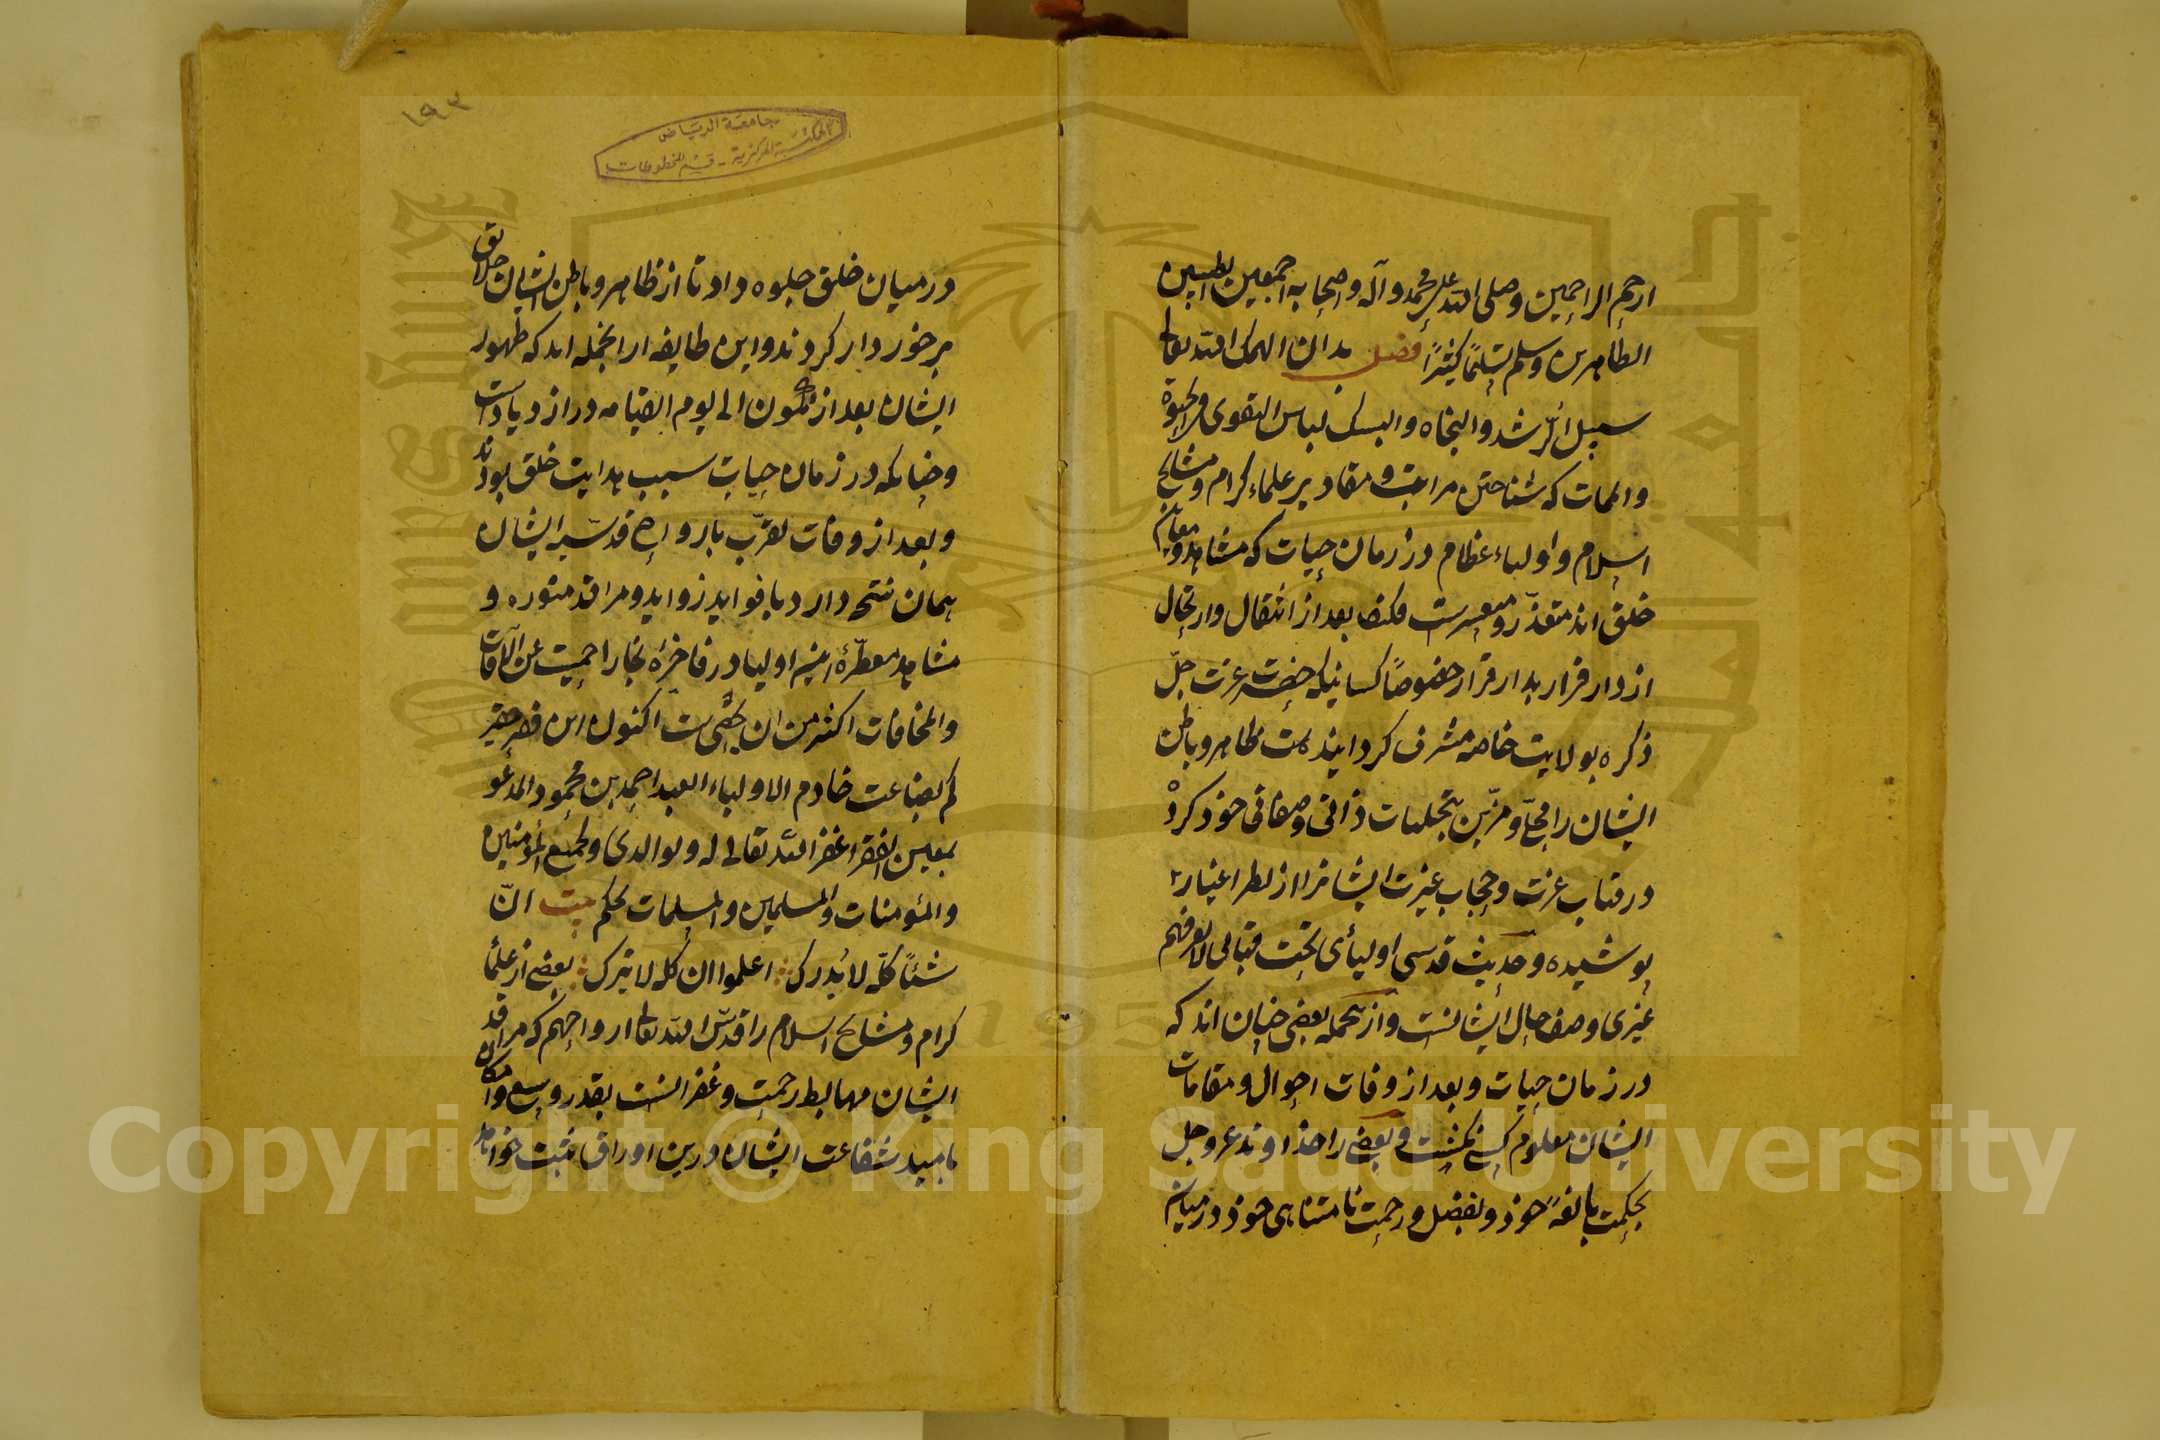 ارحم الراحمین وصلی الله علی محمد وآله واصحابه اجمعین الطیبین
الطاهرین وسلم تسلیماً کثیراً فصل بدان الهمک الله تعالی
سبیل الرشد والنجاه والبسک لباس التقوی فی الحیوة
والممات که شناختن مراتب و مقادیر علماء کرام و مشایخ
اسلام و اولیاء عظام در زمان حیات که مشاهد و معاین
خلق اند متعذّر و متعسرست فکیف بعد از انتقال وارتحال
از دار فرار بدار قرار خصوصاً کسانیکه حضرت عزت جلّ
ذکره بولایت خاصه مشرف کردانیده است و ظاهر وباطن
ایشان را محلّی و مزیّن بتجلیات ذاتی وصفاتی خود کرده
در قباب عزت وحجاب غیرت ایشانرا از نظر اغیار
پوشیده وحدیث قدسی اولیائی تحت قبابی لا یعرفهم
غیری وصف حال ایشانست وازنجمله بعضی چنان اند که
در زمان حیات و بعد از وفات احوال و مقامات
ایشان معلوم کسی نکشت و بعضی را خداوند عز وجل
بحکمت بالغهٔ خود و بفضل و رحمت نا متناهی خود در میان
۱۹۳
جامعة الرياض
المكتبة المركزية - قسم المخطوطات
در میان خلق جلوه داد تا از ظاهر وباطن ایشان خلایق
برخوردار کردند و این طایفه ازانجمله اند که ظهور
ایشان بعد از کمون الی یوم القیامه در ازدیادست
و چنانکه در زمان حیات سبب هدایت خلق بودند
و بعد از وفات تقرّب بارواح قدسیه ایشان
همان نتیجه دارد با فواید زواید و مراقد منوره و
مشاهد معطرهٔ اولیا در فاخرهٔ بخارا حمیت عن الآفات
والمخافات اکثر من ان یحصی ست اکنون این فقیر حقیر
کم بضاعت خادم الاولیاء العبد احمد بن محمود المدعو
بمعین الفقرا غفر الله تعالی له ولوالدی ولجمیع المؤمنین
والمؤمنات والمسلمین والمسلمات بحکم بیت انّ
شئاً کلّه لا یُدرک اعلموا ان کله لا یترک بعضی از علماء
کرام و مشایخ اسلام را قدّس الله تعالی ارواحهم که مراقد
ایشان مهابط رحمت و غفرانست بقدر وسع وامکان
بامید شفاعت ایشان درین اوراق ثبت خواهد
Copyright © King Saud University
King Saud University
جامعة الملك سعود
195